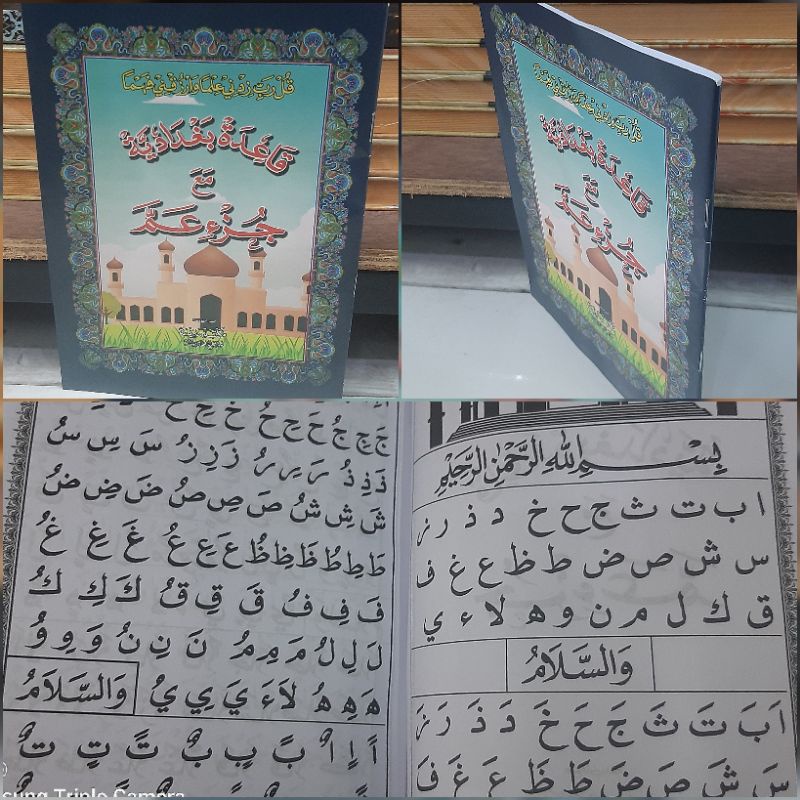 قُلْ رَبِّ زِدْنِي عِلْمًا وَارْزُقْنِي فَهْمًا
قَاعِدَةْ بَغْدَادِيَّةْ
مَعَ
جُزْءِ عَمَّ
قُلْ رَبِّ زِدْنِي عِلْمًا وَارْزُقْنِي فَهْمًا
قَاعِدَةْ بَغْدَادِيَّةْ
مَعَ
جُزْءِ عَمَّ
بِسْمِ اللهِ الرَّحْمٰنِ الرَّحِيْمِ
ا ب ت ث ج ح خ د ذ ر ز
س ش ص ض ط ظ ع غ ف
ق ك ل م ن و ه لا ء ي
وَالسَّلَامُ
اَ بَ تَ ثَ جَ حَ خَ دَ ذَ رَ زَ
سَ شَ صَ ضَ طَ ظَ عَ غَ فَ
جَ جِ جُ حَ حِ حُ خَ خِ خُ
ذَ ذِ ذُ رَ رِ رُ زَ زِ زُ سَ سِ سُ
شَ شِ شُ صَ صِ صُ ضَ ضِ ضُ
طَ طِ طُ ظَ ظِ ظُ عَ عِ عُ غَ غِ غُ
فَ فِ فُ قَ قِ قُ كَ كِ كُ
لَ لِ لُ مَ مِ مُ نَ نِ نُ وَ وِ وُ
هَ هِ هُ لَا ءَ يَ يِ يُ وَالسَّلَامُ
اً اٍ اٌ بً بٍ بٌ تً تٍ تٌ
sung Triple Camera